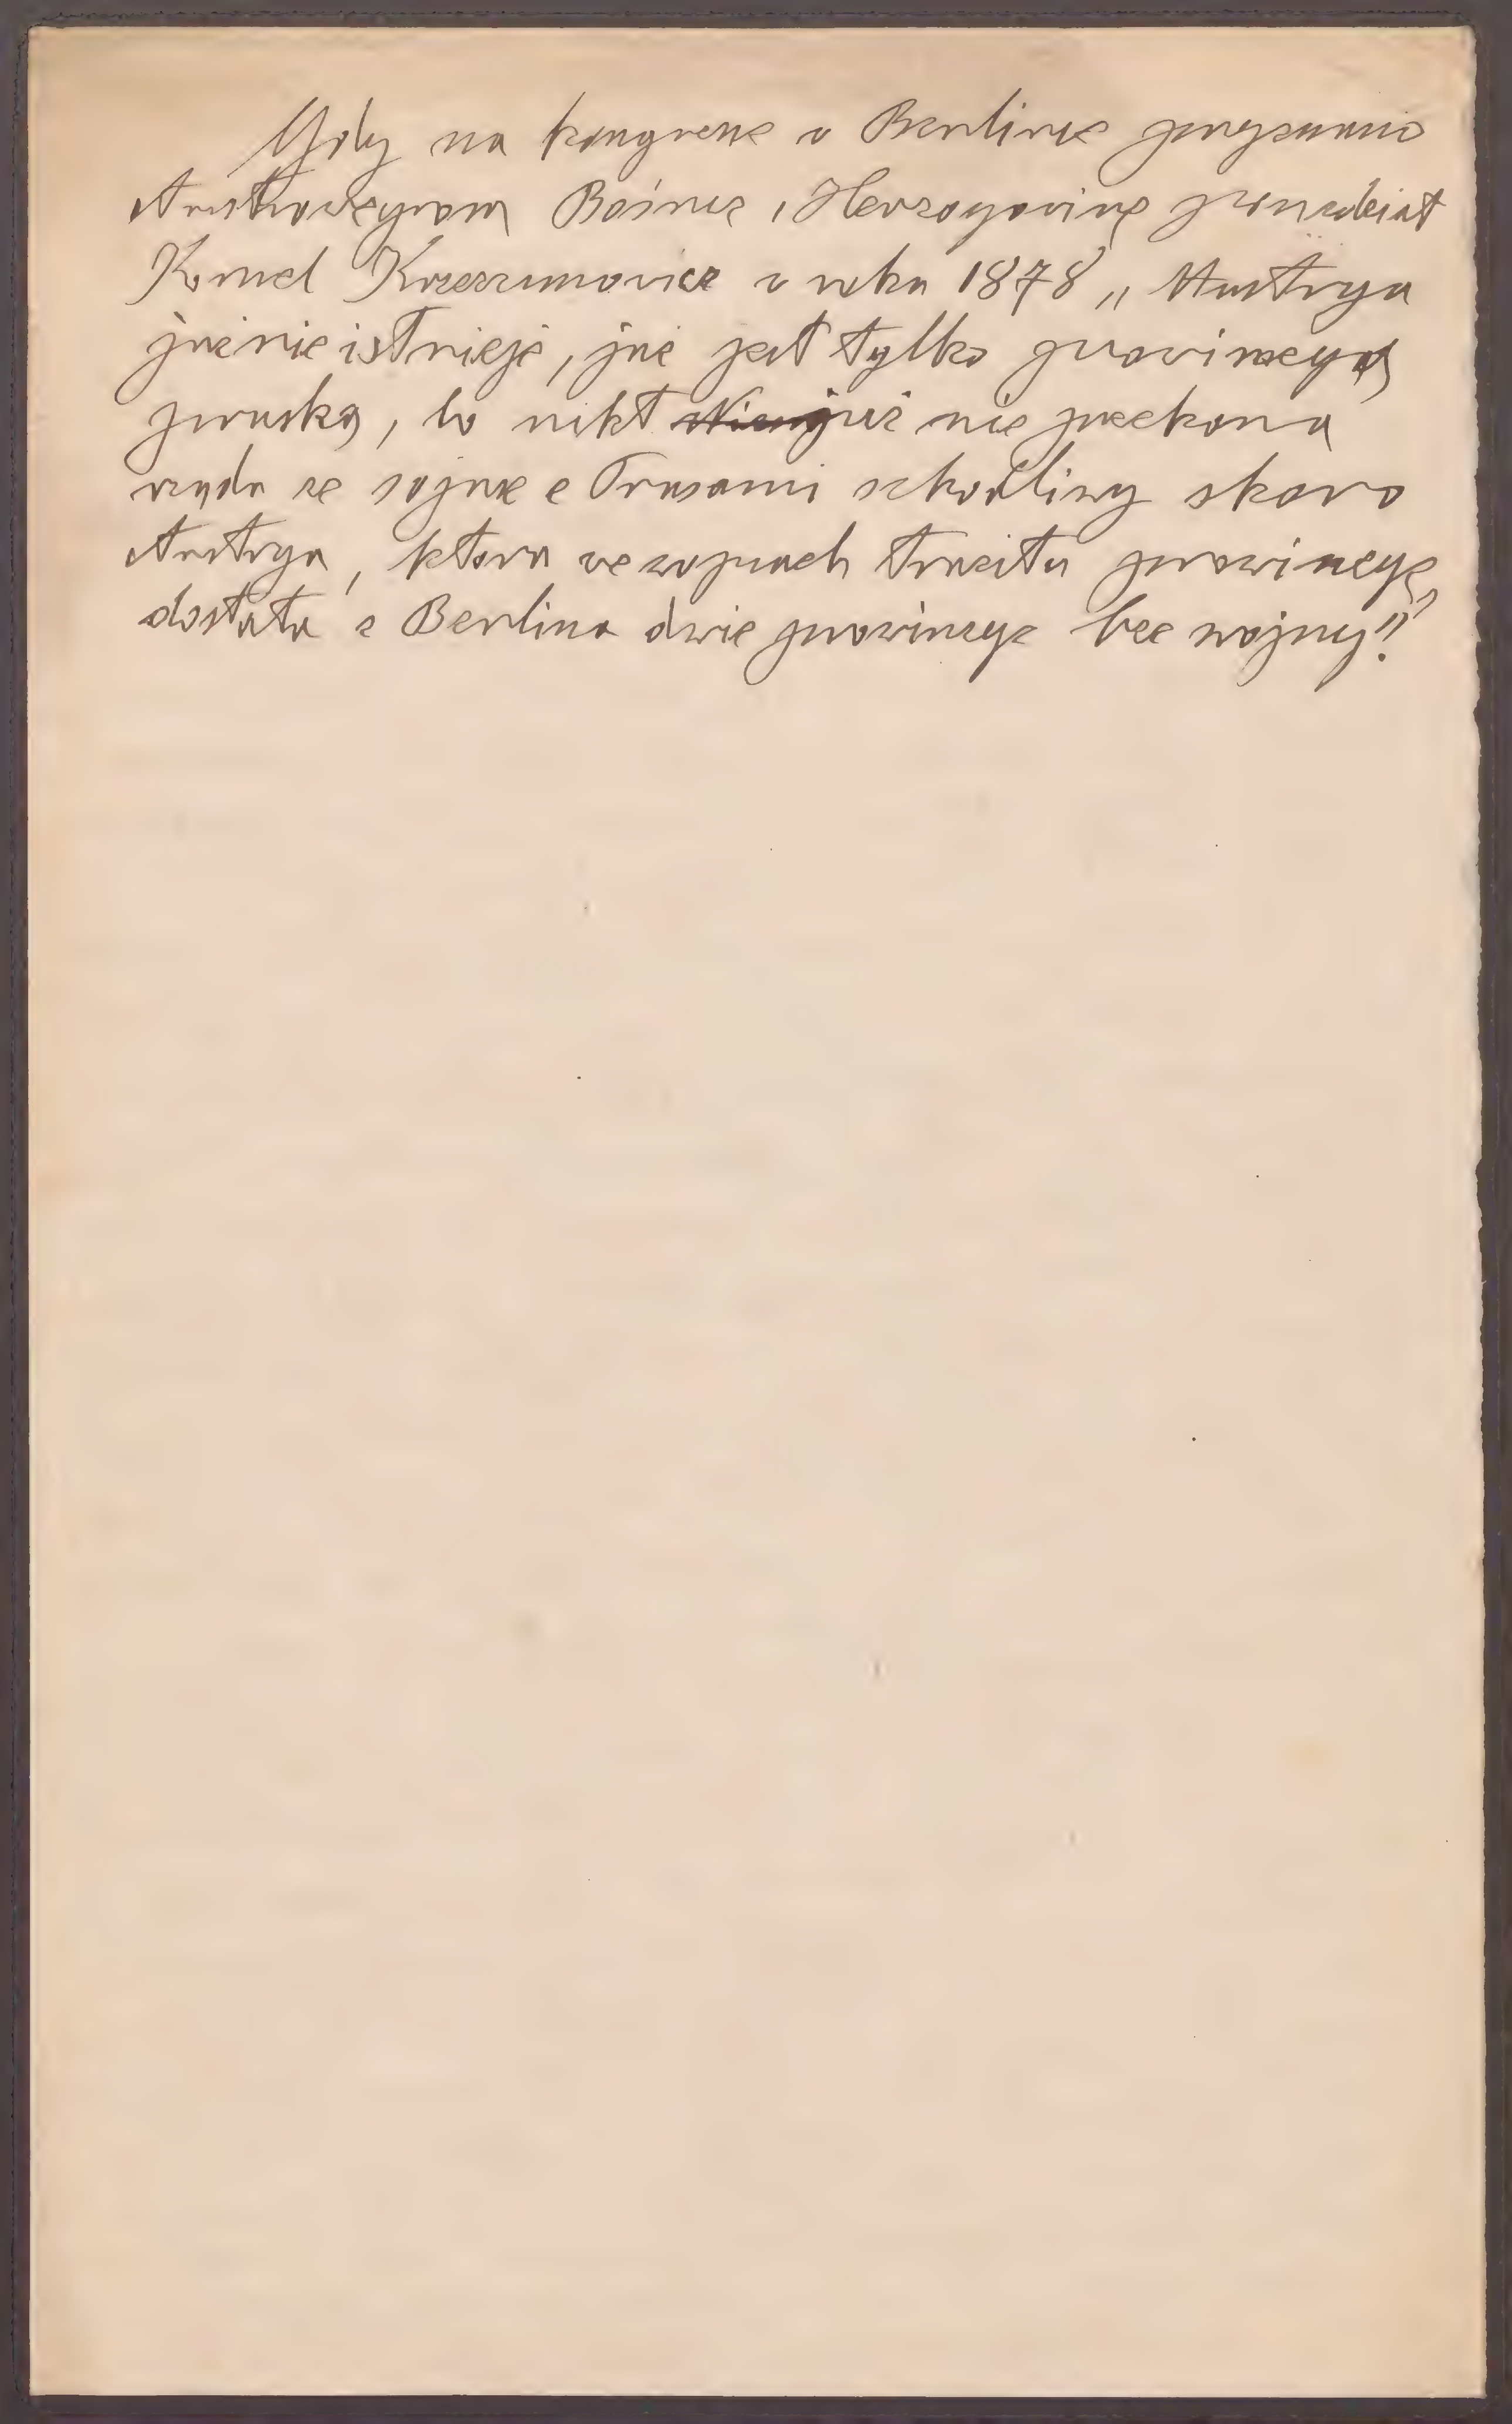 Gdy na kongresie w Berlinie przyznano
Austrowęgrom Bośnię i Herzogowinę powiedział
Kornel Krzeczunowicz w roku 1878 „Austrya
już nie istnieje, już jest tylko prowincyą
pruską, bo nikt już nie przekona
rządu że sojusz z Prusami szkodliwy skoro
Austrya, która we wojnach traciła prowincye,
dostała z Berlina dwie prowincye bez wojny!"